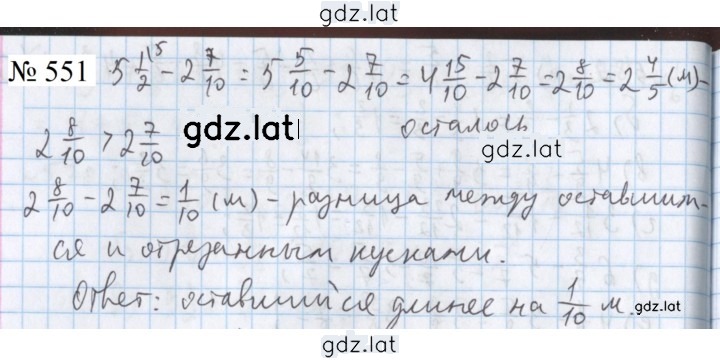 gdz.lat
№ 551 5 1/2 \5 - 2 7/10 = 5 5/10 - 2 7/10 = 4 15/10 - 2 7/10 = 2 8/10 = 2 4/5 (м) -
осталось
2 8/10 > 2 7/10
gdz.lat
2 8/10 - 2 7/10 = 1/10 (м) - разница между оставшим-
ся и отрезанным кусками.
Ответ: оставшийся длинее на 1/10 м.
gdz.lat
gdz.lat